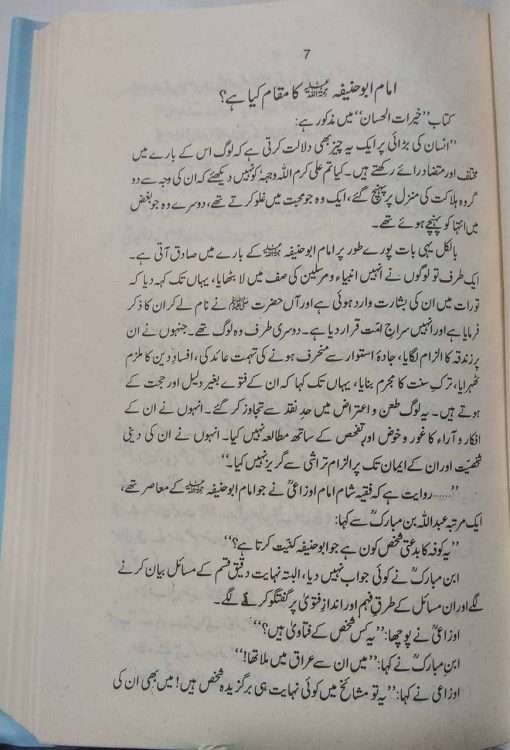 7
امام ابو حنیفہ رحمۃ اللہ علیہ کا مقام کیا ہے؟
کتاب ”خیرات الحسان“ میں مذکور ہے:
”انسان کی بڑائی پر ایک یہ چیز بھی دلالت کرتی ہے کہ لوگ اس کے بارے میں
مختلف اور متضاد رائے رکھتے ہیں۔ کیا تم علی کرم اللہ وجہہٗ کو نہیں دیکھتے کہ ان کی وجہ سے دو
گروہ ہلاکت کی منزل پر پہنچ گئے، ایک وہ جو محبت میں غلو کرتے تھے، دوسرے وہ جو بغض
میں انتہا کو پہنچے ہوئے تھے۔
بالکل یہی بات پورے طور پر امام ابو حنیفہ رحمۃ اللہ علیہ کے بارے میں صادق آتی ہے۔
ایک طرف تو لوگوں نے انہیں انبیاء و مرسلین کی صف میں لا بٹھایا، یہاں تک کہہ دیا کہ
تورات میں ان کی بشارت وارد ہوئی ہے اور آں حضرت ﷺ نے نام لے کر ان کا ذکر
فرمایا ہے اور انہیں سراجِ امّت قرار دیا ہے۔ دوسری طرف وہ لوگ تھے۔ جنہوں نے ان
پر زندقہ کا الزام لگایا، جادۂ استوار سے منحرف ہونے کی تہمت عائد کی، افسادِ دین کا ملزم
ٹھہرایا، ترکِ سنت کا مجرم بنایا، یہاں تک کہا کہ ان کے فتوے بغیر دلیل اور حجت کے
ہوتے ہیں۔ یہ لوگ طعن و اعتراض میں حدِ نقد سے تجاوز کر گئے۔ انہوں نے ان کے
افکار و آراء کا غور و خوض اور تفحص کے ساتھ مطالعہ نہیں کیا۔ انہوں نے ان کی دینی
شخصیّت اور ان کے ایمان تک پر الزام تراشی سے گریز نہیں کیا۔“
”......روایت ہے کہ فقیہ شام امام اوزاعیؒ نے جو امام ابو حنیفہ رحمۃ اللہ علیہ کے معاصر تھے،
ایک مرتبہ عبداللہ بن مبارکؒ سے کہا:
”یہ کوفہ کا بدعتی شخص کون ہے جو ابو حنیفہ کنیّت کرتا ہے؟“
ابن مبارکؒ نے کوئی جواب نہیں دیا، البتہ نہایت دقیق قسم کے مسائل بیان کرنے
لگے اور ان مسائل کے طرقِ فہم اور اندازِ فتویٰ پر گفتگو کرنے لگے۔
اوزاعیؒ نے پوچھا: ”یہ کس شخص کے فتاویٰ ہیں؟“
ابنِ مبارکؒ نے کہا: ”میں ان سے عراق میں ملا تھا!“
اوزاعی نے کہا: ”یہ تو مشائخ میں کوئی نہایت ہی برگزیدہ شخص ہیں! میں بھی ان کی